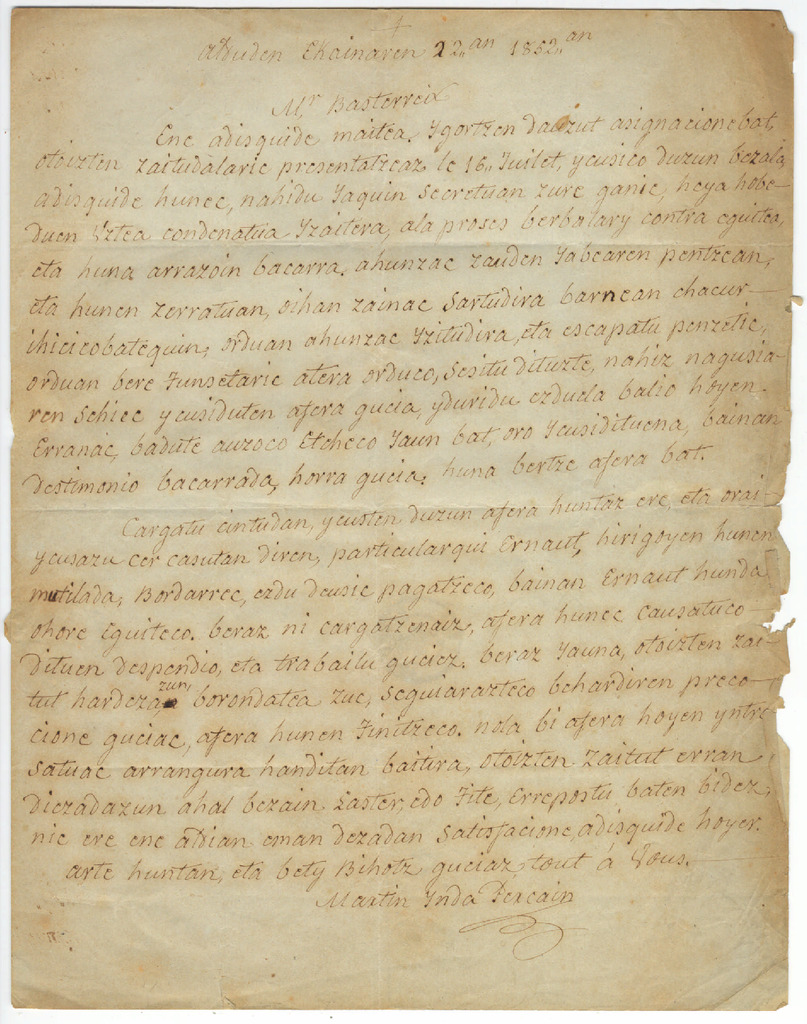 alduden Ekainaren 22,,an 1852,,an
Mr, Basterreix
Ene adisquide maitea. Igortzen dauzut asignacionebat,
otoizten zaitudalaric presentatzeaz, le 16, Juilet, ycusico duzun bezala,
adisquide hunec, nahidu Jaquin secretuan zure ganic, heya hobe-
duen Uztea condenatua Izaitera, ala proses berbalary contra eguitea,
eta huna arrazoin bacarra. ahunzac zauden Jabearen pentzean,
eta hunen zerratuan, oihan zainac sartudira barnean chacur-
ihicicobatequin, orduan ahunzac Izitudira, eta escapatu penzetic,
orduan bere Funsetaric atera orduco, sesitu dituzte, nahiz nagusia-
ren sehiec ycusiduten afera gucia, yduridu ezduela balio hoyen
Erranac, badute auzoco Etcheco Jaun bat, oro Icusidituena, bainan
destimonio bacarrada, horra gucia. huna bertze afera bat.
Cargatu cintudan, ycusten duzun afera huntaz ere, eta orai-
ycusazu cer casutan diren, particularqui Ernaut, hirigoyen hunen
mutilada, Bordarrec, ezdu deusic pagatzeco, bainan Ernaut hunda
ohore Eguiteco. beraz ni cargatzenaiz, afera hunec causatuco-
dituen despendio, eta trabailu guciez. beraz Jauna, otoizten zai-
tut hardezazun, borondatea zuc, seguiarazteco behardiren preco-
cione guciac, afera hunen Finitzeco. nola bi afera hoyen yntre-
satuac arrangura handitan baitira, otoizten zaitut erran
diezadazun ahal bezain Laster, edo Fite, Errepostu baten bidez,
nic ere ene aldian eman dezadan satisfacione, adisquide hoyer.
arte huntan, eta bety Bihotz guciaz, tout á Vous.
Martin Inda Fercain